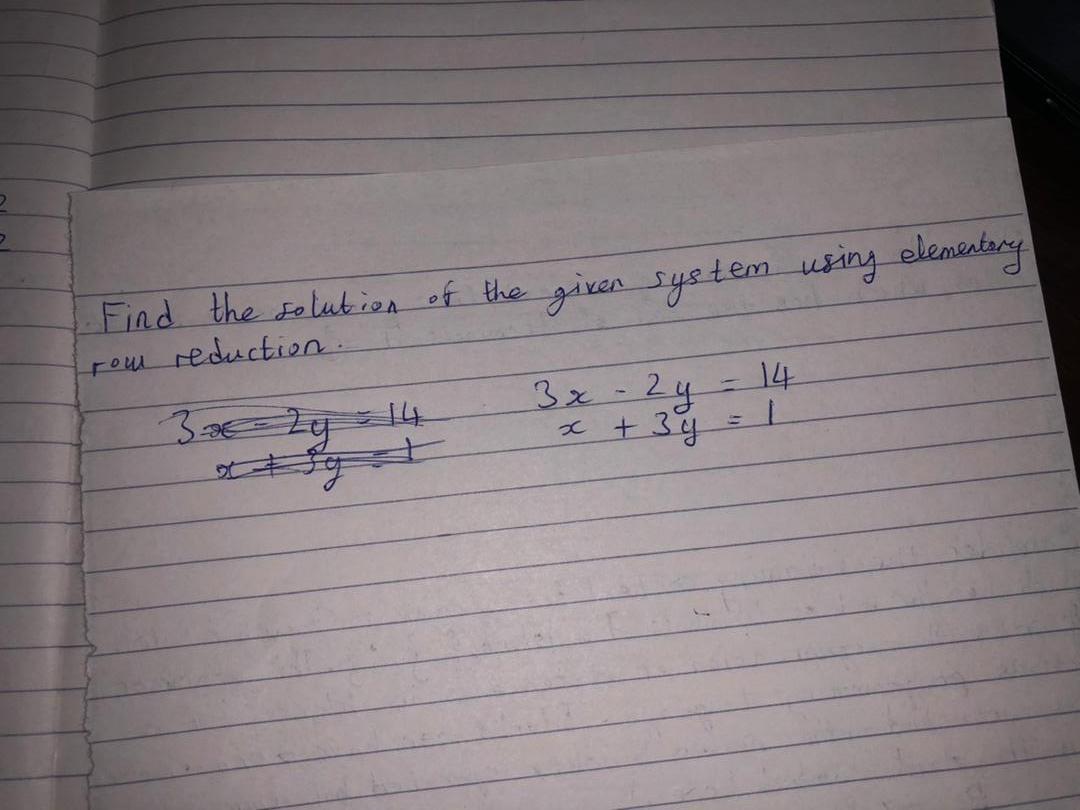 2
2
Find the solution of the given system using elementary
row reduction.
3x - 2y = 14
x + 3y = 1
3x - 2y = 14
x + 3y = 1